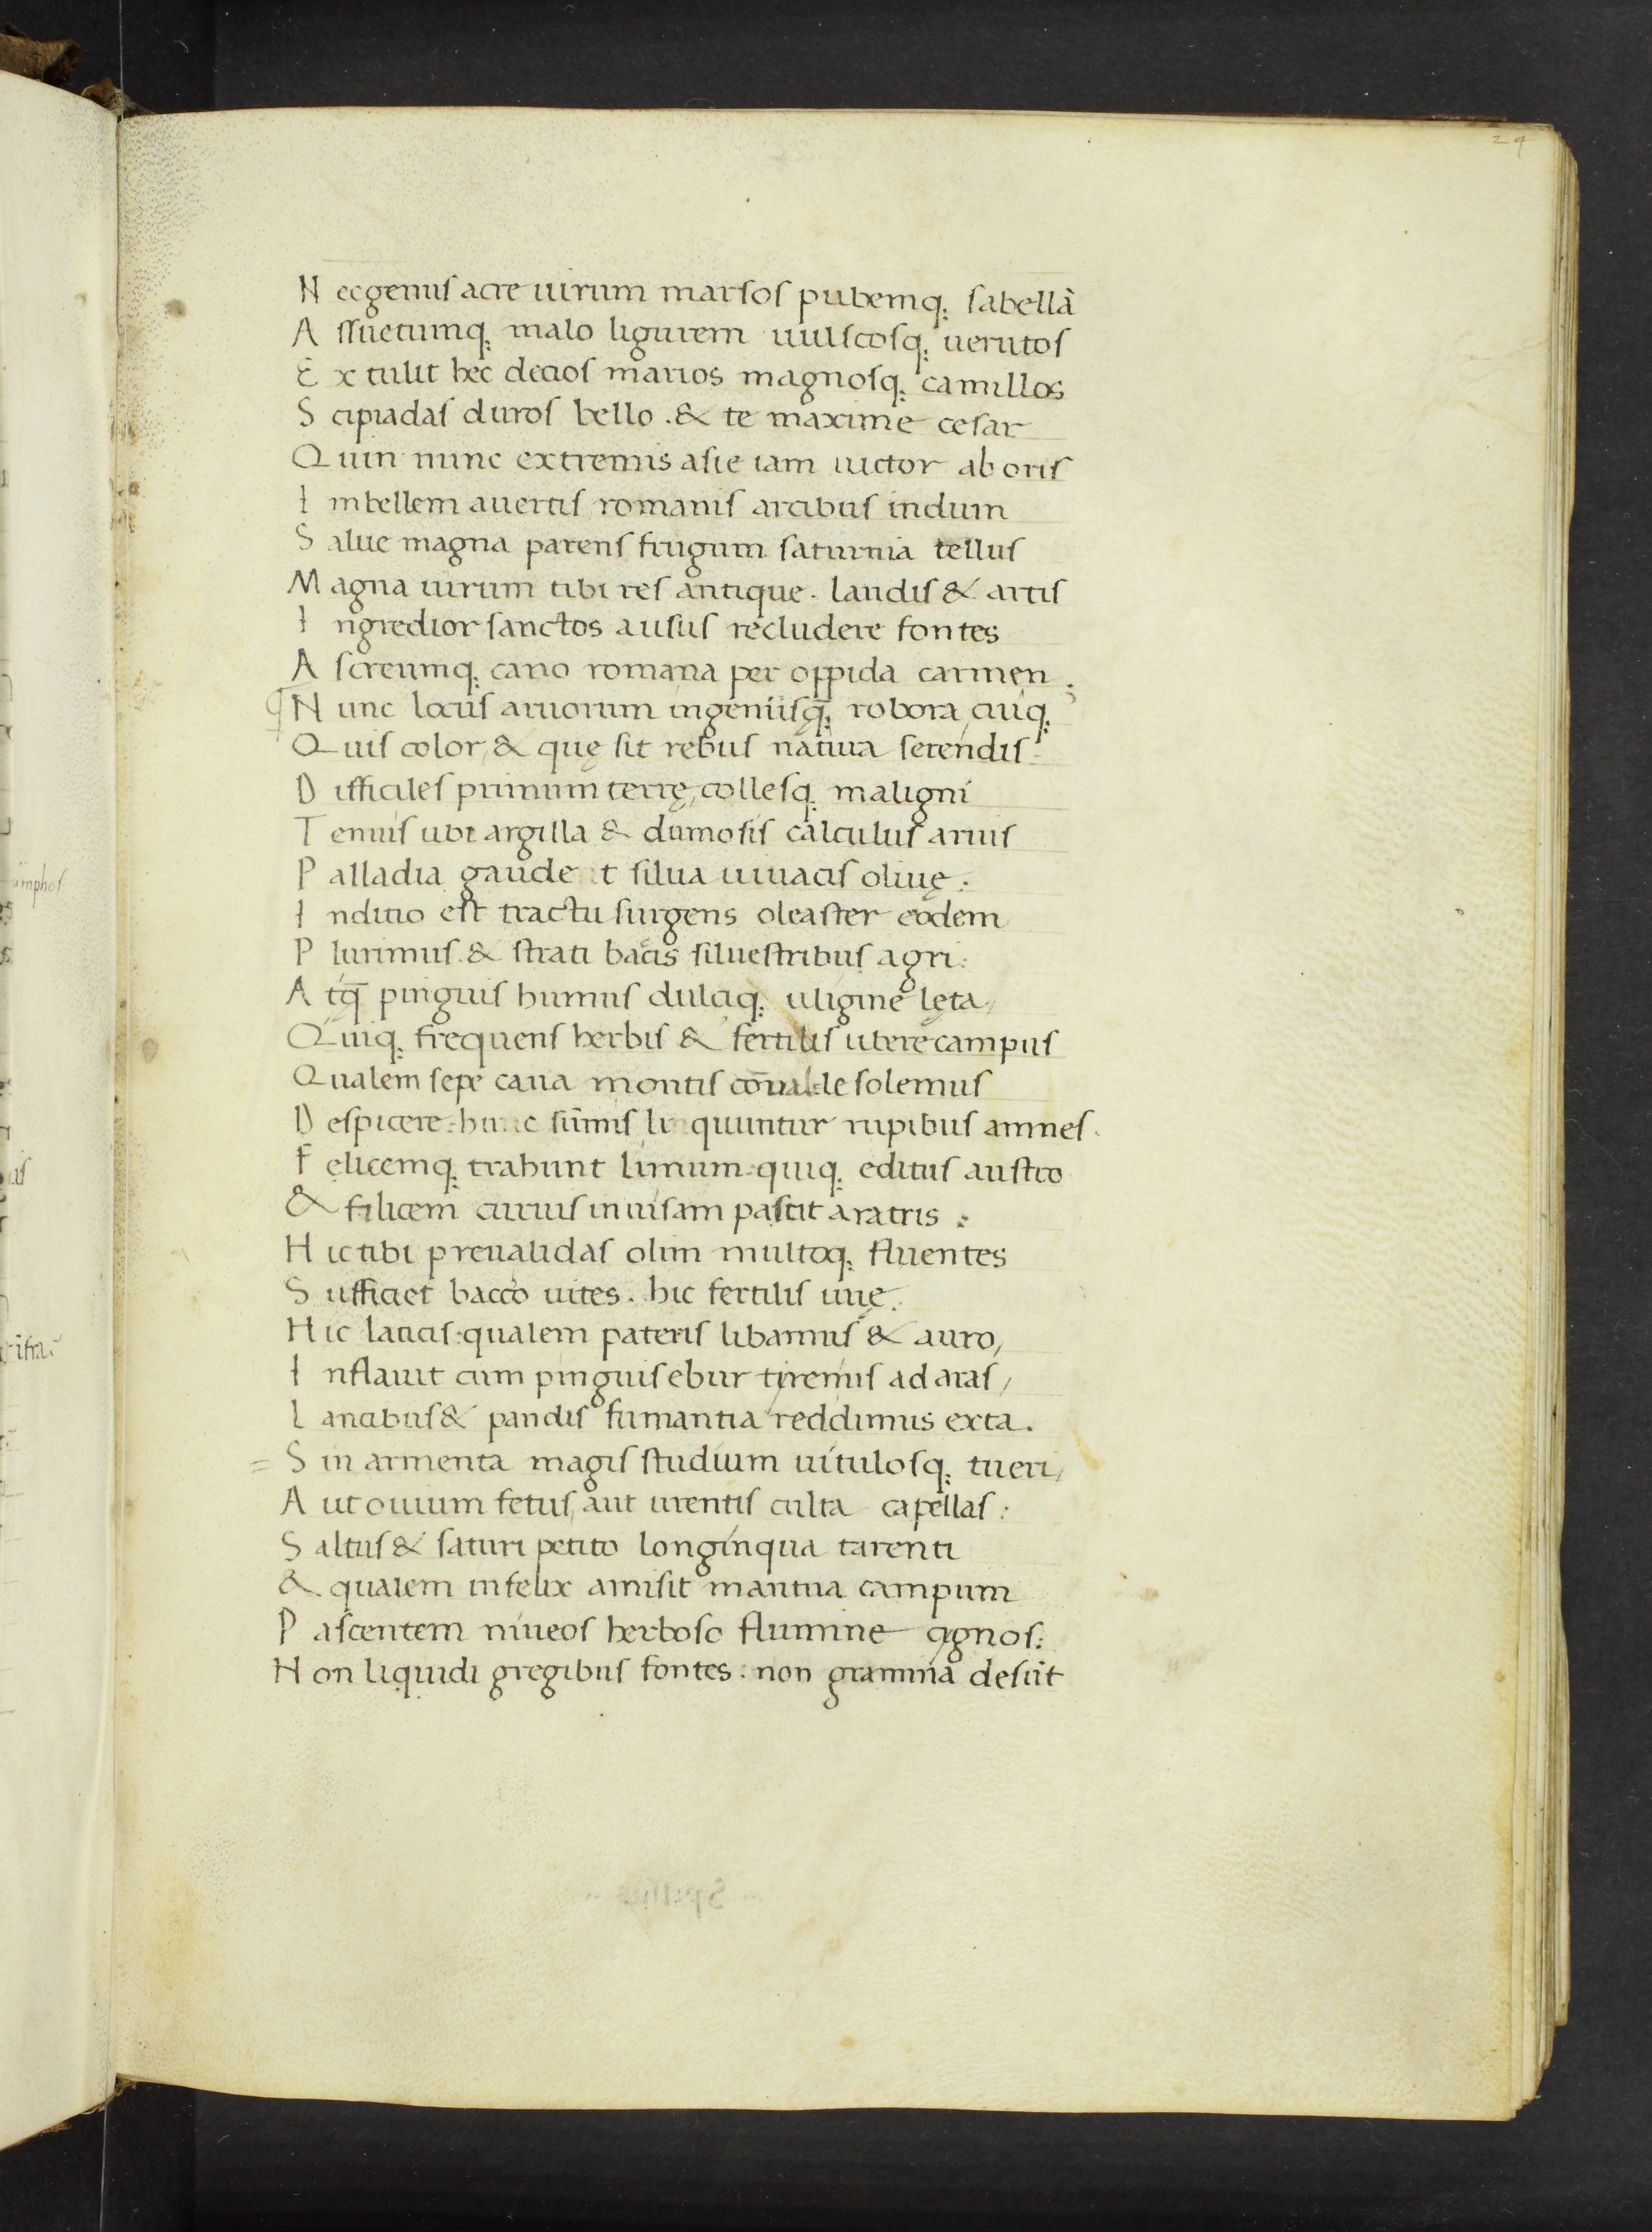 24
N ecgenus acre uirum marsos pubemq; sabellā
A ssuetumq; malo ligurem uulscosq; uerutos
E x tulit hec decios marios magnosq; camillos
S cipiadas duros bello . & te maxime cesar
Q uin nunc extremis asie iam uictor ab oris
I mbellem auertis romanis arcibus indum
S alue magna parens frugum saturnia tellus
M agna uirum tibi res antique . laudis & artis
I ngredior sanctos ausus recludere fontes
A screumq; cano romana per oppida carmen .
N unc locus aruorum ingeniisq; robora cuiq;
Q uis color, & quę sit rebus natura ferendis
D ifficiles primum terrę, collesq; maligni
T enuis ubi argilla & dumosis calculus aruis
P alladia gaudent silua uiuacis oliuę .
I nditio est tractu surgens oleaster eodem
P lurimus . & strati bacis siluestribus agri :
A tq̄ pinguis humus dulciq; uligine lęta,
Q uiq; frequens herbis & fertilis ubere campus
Q ualem sepe caua montis cōualle solemus
D espicere : hunc sūmis linquuntur rupibus amnes .
F elicemq; trahunt limum : quiq; editus austro
& filicem curuis inuisam pascit aratris :
H ic tibi preualidas olim multoq; fluentes
S ufficiet bacco uites . hic fertilis uuę .
H ic laticis : qualem pateris libamus & auro,
I nflauit cum pinguis ebur tirenus ad aras,
L ancibus & pandis fumantia reddimus exta .
= S in armenta magis studium uitulosq; tueri,
A ut ouium fetus, aut urentis culta capellas :
S altus & saturi petito longinqua tarenti
& qualem infelix amisit mantua campum
P ascentem niueos herboso flumine cignos :
N on liquidi gregibus fontes . non gramina desūt